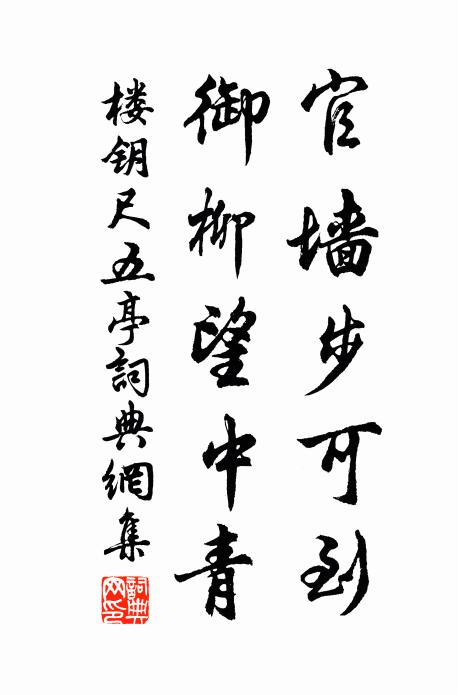 官墙步可到
御柳望中青
楼钥尺五亭詞典網集
詞典网印